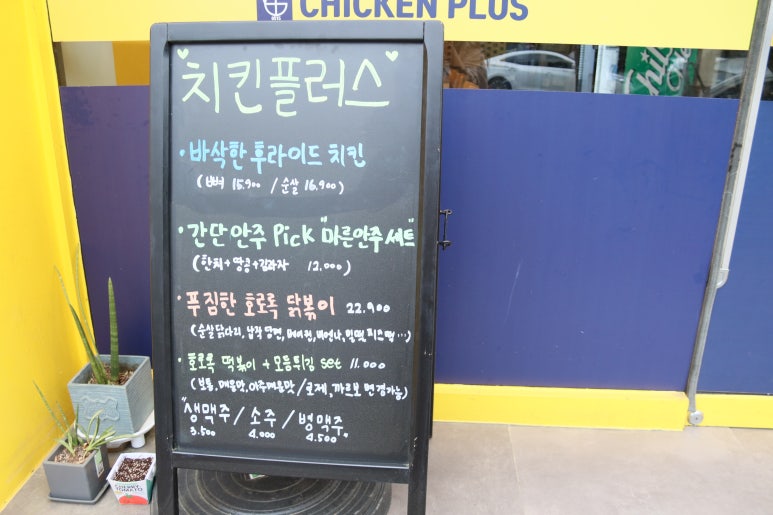 CHICKEN PLUS
치킨플러스
·바삭한 후라이드 치킨
(뼈 15.900 / 순살 16.900)
·간단안주 Pick "마른안주세트"
(한치+땅콩+김과자 12.000)
·푸짐한 호로록 닭볶이 22.900
(순살닭다리, 납작당면, 메추리알, 비엔나, 밀떡, 치즈떡 ...)
·호로록 떡볶이 + 모듬튀김 set 11.000
(보통, 매운맛, 아주매운맛 / 로제, 까르보 변경가능)
"생맥주 / 소주 / 병맥주"
3.500 4.000 4.500
CHERRY TOMATO